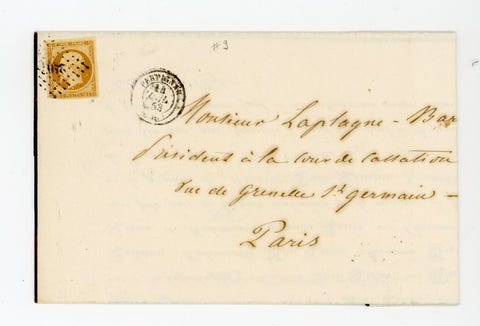 #9
PERPIGNAN
Monsieur Laplagne - Bar
Président à la cour de Cassation
rue de Grenelle St germain -
Paris